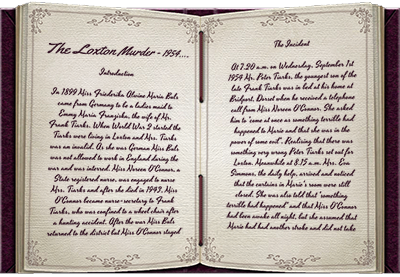 The Loxton Murder - 1954....
Introduction
In 1899 Miss Friedrika Alwine Maria Buls
came from Germany to be a ladies maid to
Emmy Maria Franziska, the wife of Mr.
Frank Tiarks. When World War 2 started the
Tiarks were living in Loxton and Mrs. Tiarks
was an invalid. As she was German Miss Buls
was not allowed to work in England during the
war and was interned. Miss Noreen O'Connor, a
State registered nurse, was engaged to nurse
Mrs. Tiarks and after she died in 1943, Miss
O'Connor became nurse-secretary to Frank
Tiarks, who was confined to a wheel chair after
a hunting accident. After the war Miss Buls
returned to the district but Miss O'Connor stayed
The Incident
At 7.20 a.m. on Wednesday, September 1st
1954 Mr. Peter Tiarks, the youngest son of the
late Frank Tiarks was in bed at his home at
Bridport, Dorset when he received a telephone
call from Miss Noreen O'Connor. She asked
him to "come at once as something terrible had
happened to Marie and that she was in the
power of some evil". Realising that there was
something very wrong Peter Tiarks set out for
Loxton. Meanwhile at 8.15 a.m. Mrs. Eva
Simmons, the daily help, arrived and noticed
that the curtains in Marie's room were still
closed. She was also told that "something
terrible had happened" and that Miss O'Connor
had been awake all night, but she assumed that
Marie had had another stroke and did not take